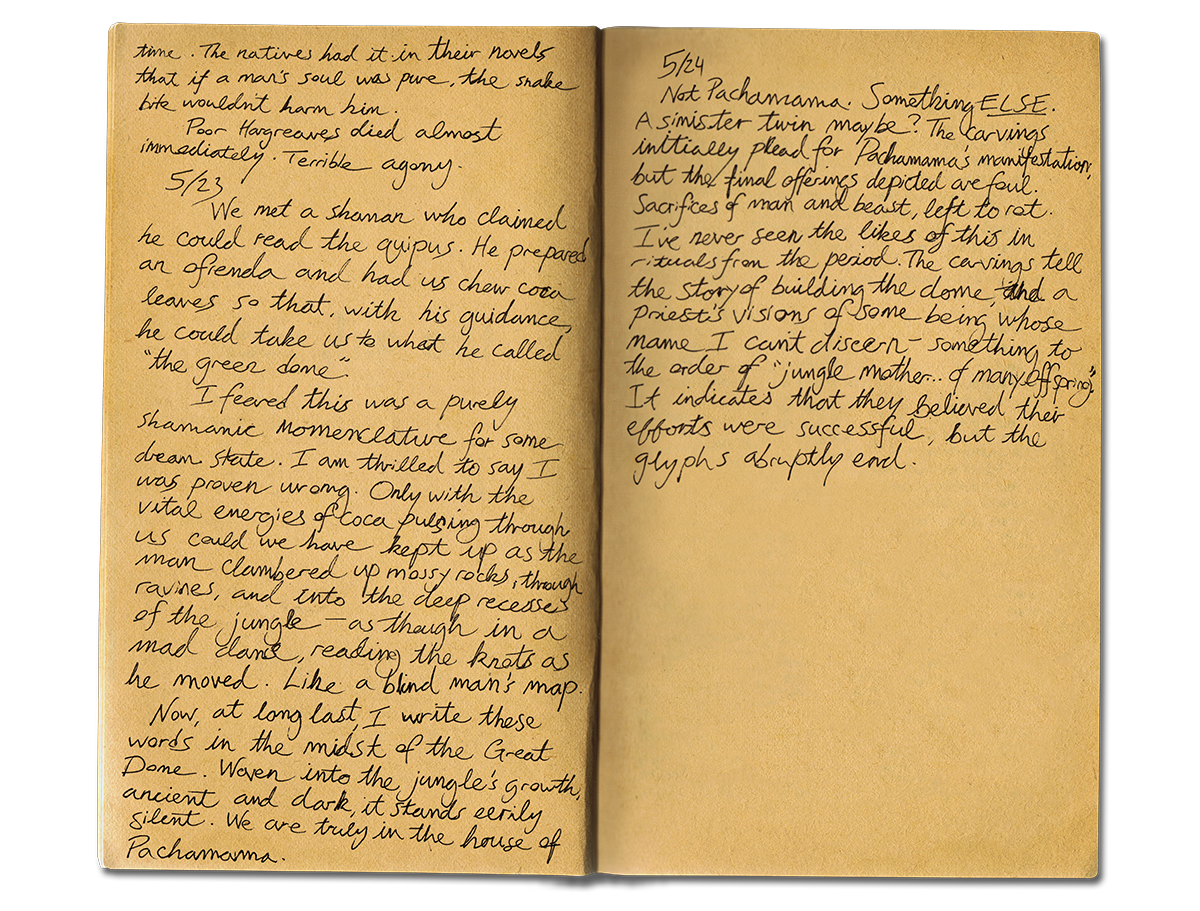 time. The natives had it in their novels
that if a man's soul was pure, the snake
bite wouldn't harm him.
Poor Hargreaves died almost
immediately. Terrible agony.
5/23
We met a shaman who claimed
he could read the quipus. He prepared
an ofrenda and had us chew coca
leaves so that, with his guidance,
he could take us to what he called
"the green dome".
I feared this was a purely
shamanic nomenclature for some
dream state. I am thrilled to say I
was proven wrong. Only with the
vital energies of coca pulsing through
us could we have kept up as the
man clambered up mossy rocks, through
ravines, and into the deep recesses
of the jungle – as though in a
mad dance, reading the knots as
he moved. Like a blind man's map.
Now, at long last, I write these
words in the midst of the Great
Dome. Woven into the jungle's growth,
ancient and dark, it stands eerily
silent. We are truly in the house of
Pachamama.
5/24
Not Pachamama. Something ELSE.
A sinister twin maybe? The carvings
initially plead for Pachamama's manifestation,
but the final offerings depicted are foul.
Sacrifices of man and beast, left to rot.
I've never seen the likes of this in
rituals from the period. The carvings tell
the story of building the dome, and a
priest's visions of some being whose
name I can't discern – something to
the order of "jungle mother... of many offspring."
It indicates that they believed their
efforts were successful, but the
glyphs abruptly end.